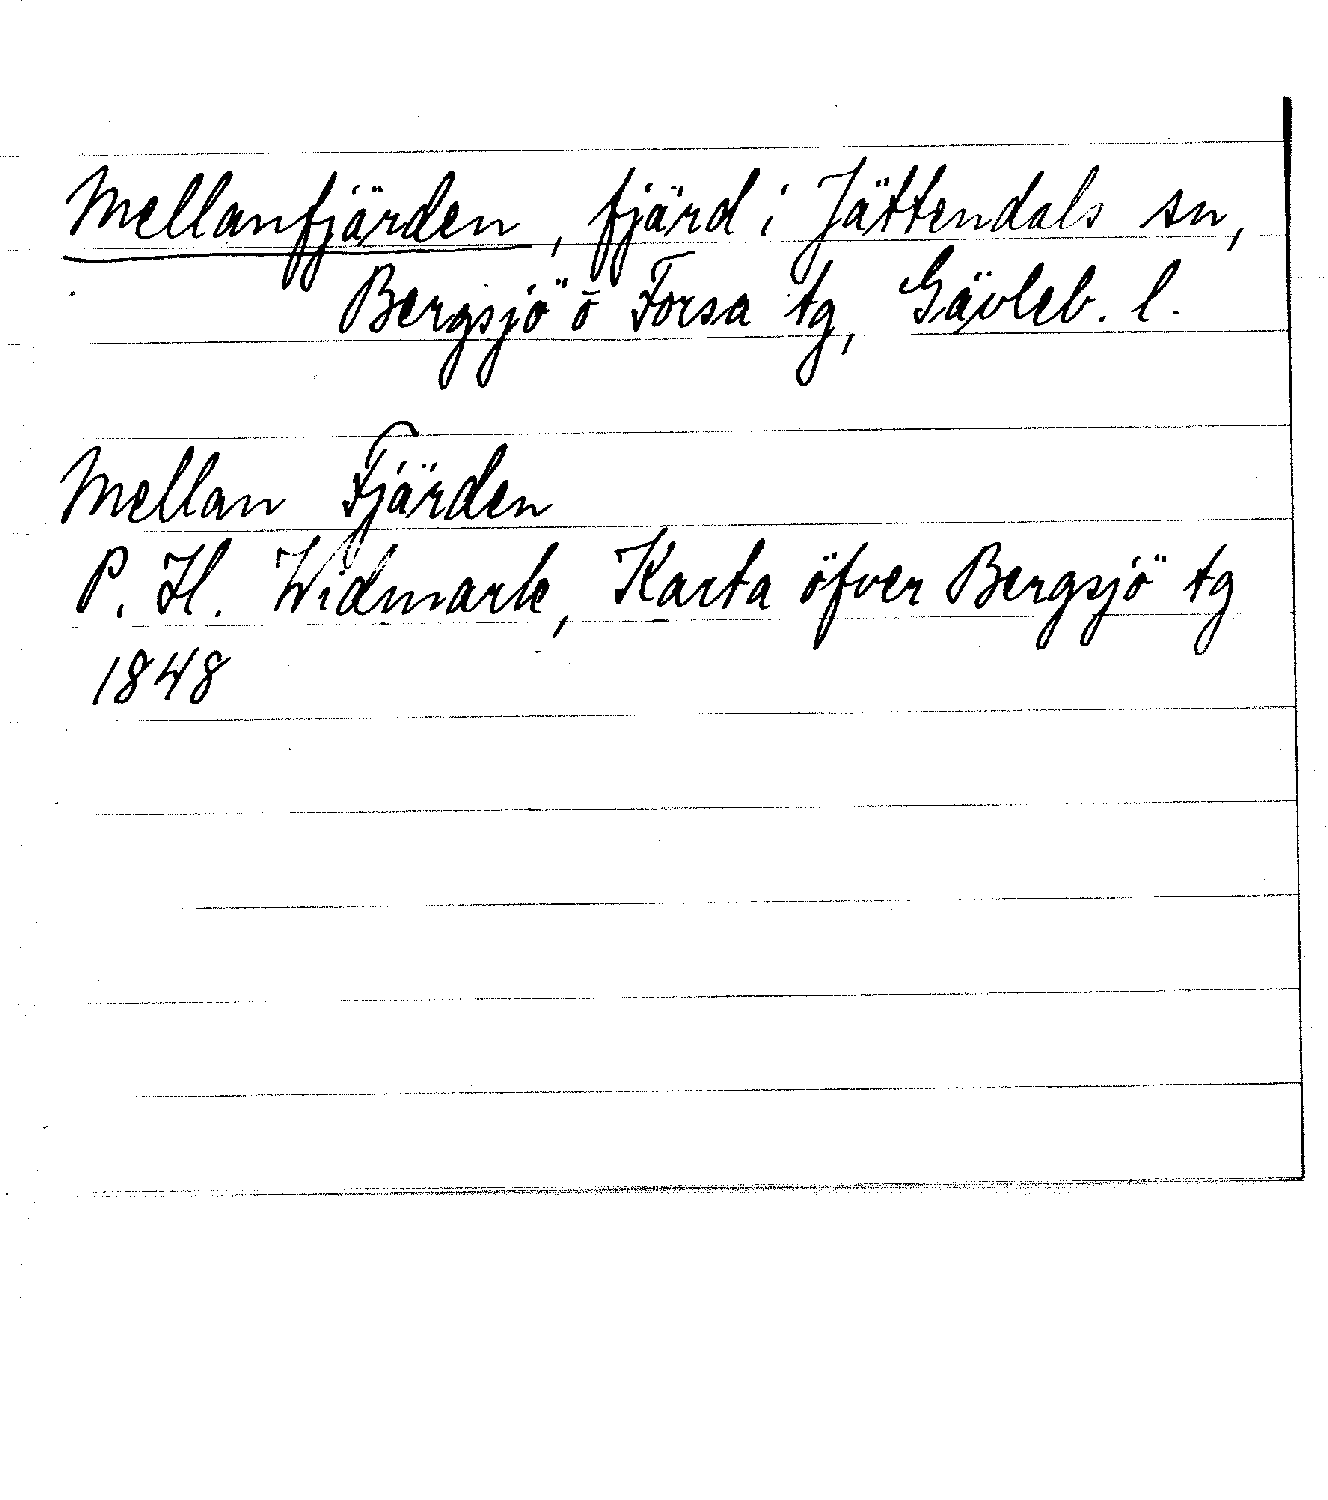 Mellanfjärden, fjärd i Jättendals sn,
Bergsjö o Forsa tg, Gävleb. l.
Mellan Fjärden
P. H. Widmark, Karta öfver Bergsjö tg
1848